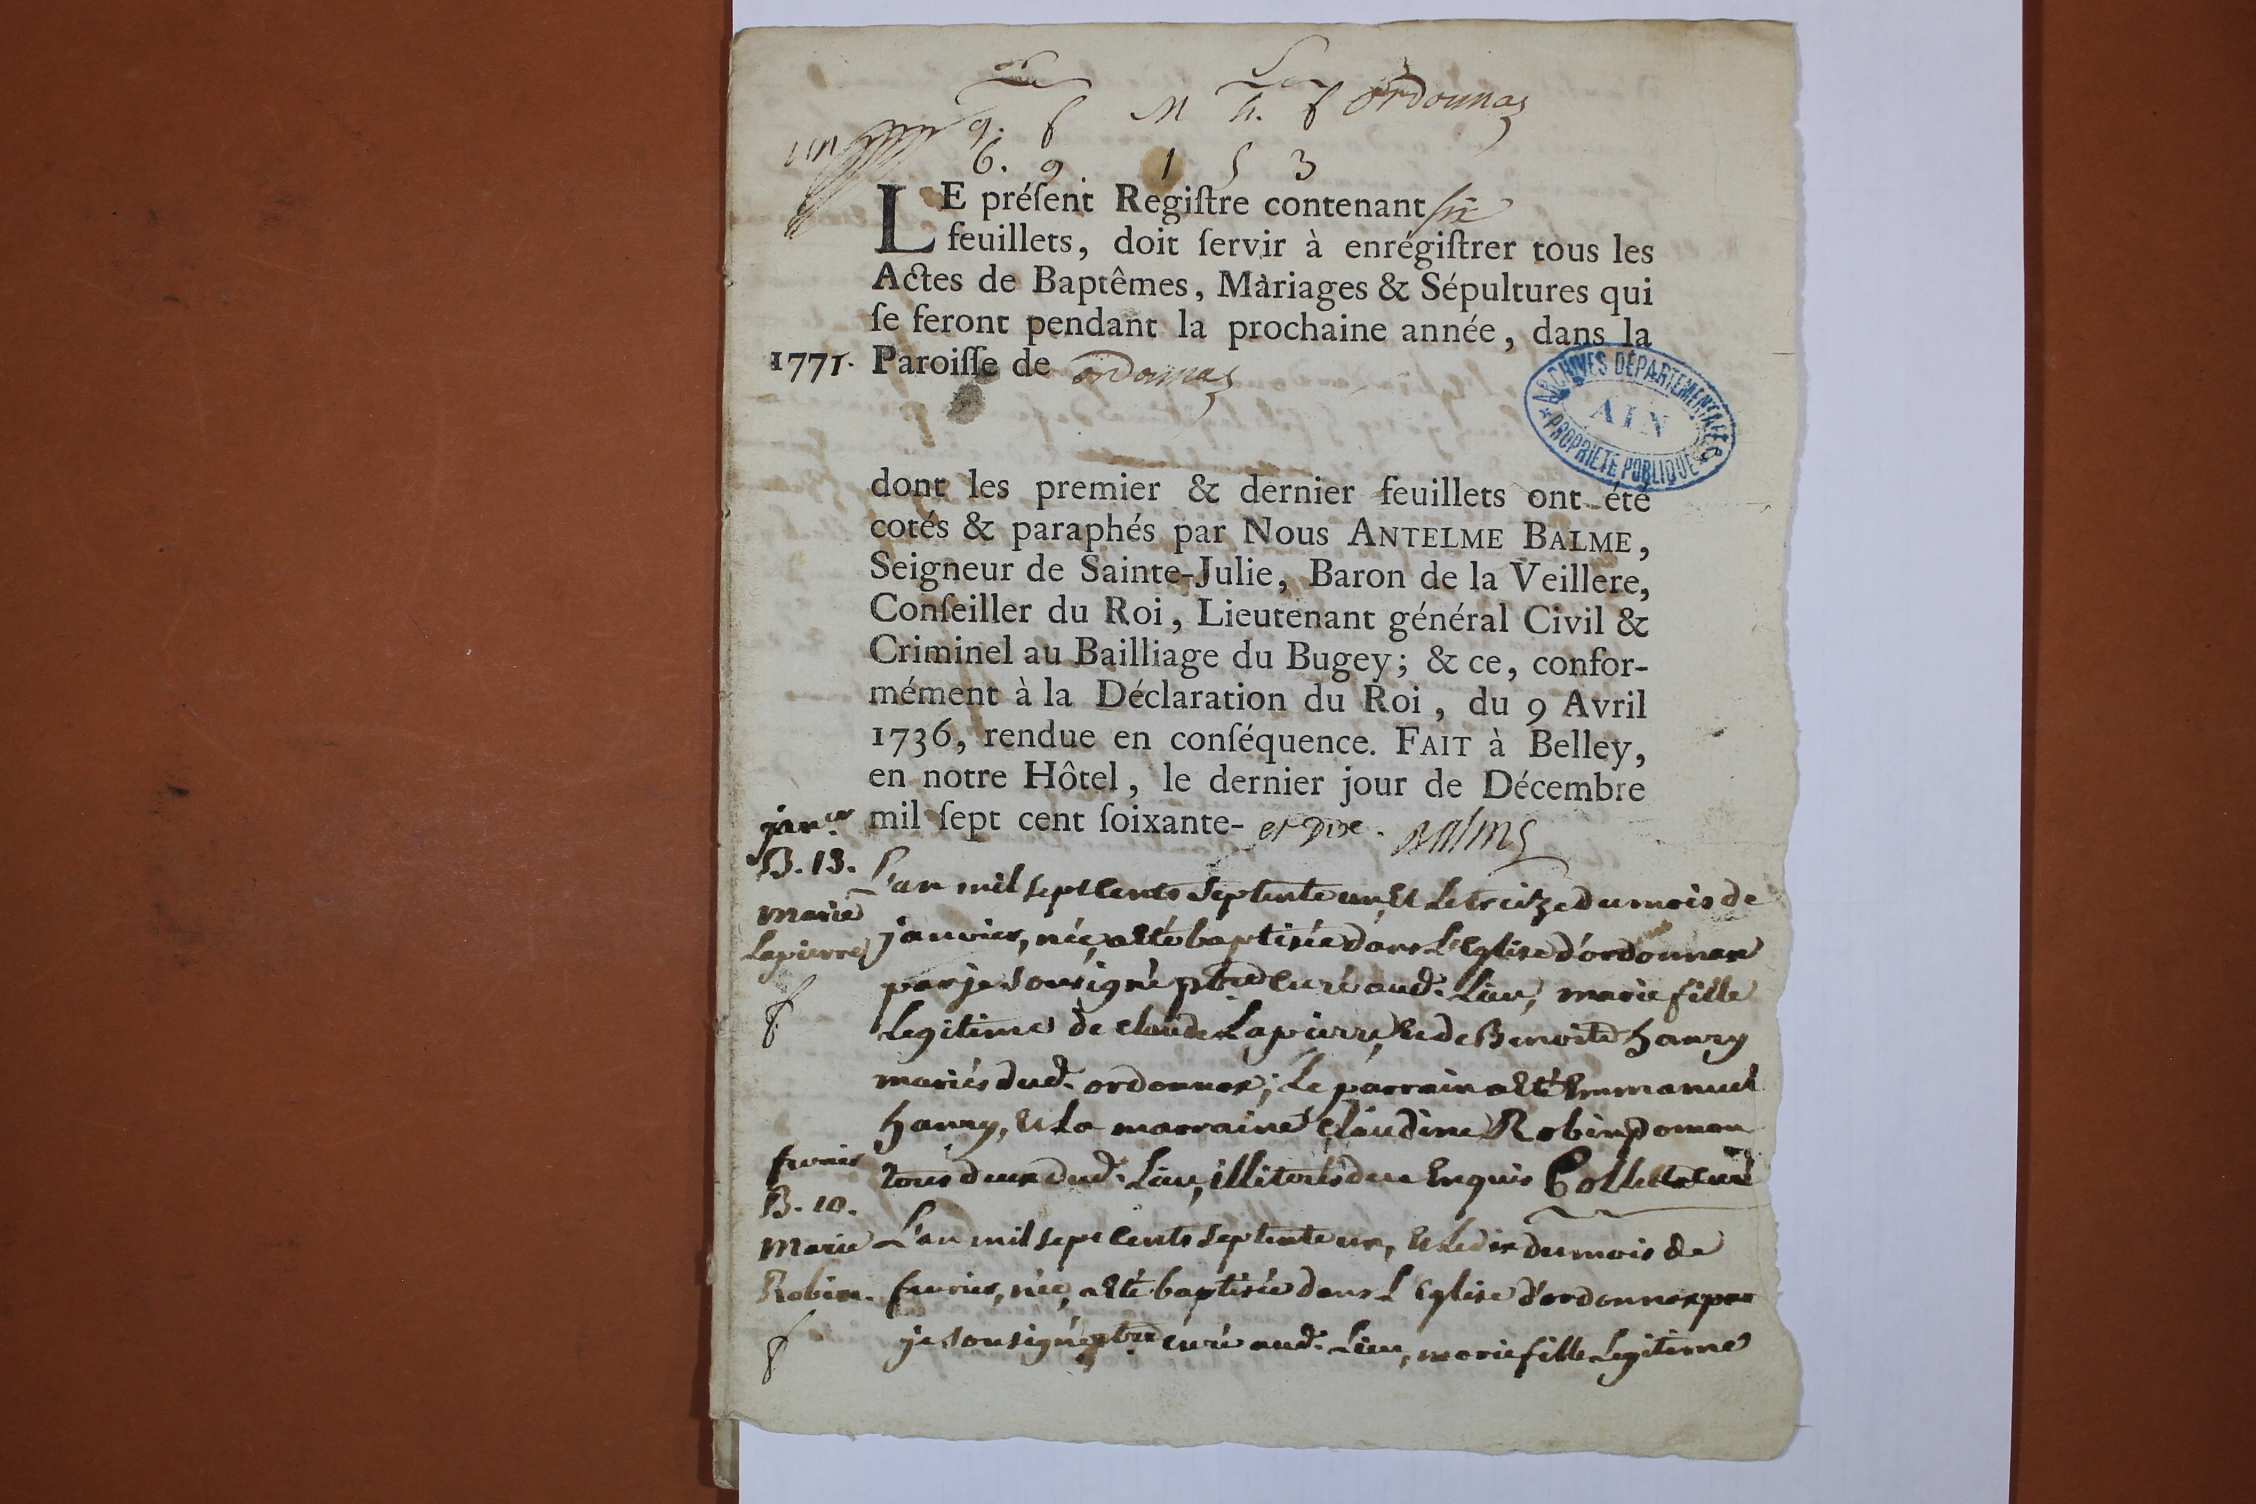 M ordonnaz
un
6. 9 1 5 3
LE préſent Regiſtre contenant six
feuillets, doit ſervir à enrégiſtrer tous les
Actes de Baptêmes, Mariages & Sépultures qui
ſe feront pendant la prochaine année, dans la
1771. Paroiſſe de ordonnaz
ARCHIVES DÉPARTEMENTALES
AIN
PROPRIÉTÉ PUBLIQUE
dont les premier & dernier feuillets ont été
cotés & paraphés par Nous ANTELME BALME,
Seigneur de Sainte-Julie, Baron de la Veillere,
Conſeiller du Roi, Lieutenant général Civil &
Criminel au Bailliage du Bugey; & ce, confor-
mément à la Déclaration du Roi, du 9 Avril
1736, rendue en conſéquence. FAIT à Belley,
en notre Hôtel, le dernier jour de Décembre
mil ſept cent ſoixante- et dix. Balme
janer
B. 13.
marie
Lapierre
L'an mil sept cents septente un, et le treize du mois de
janvier, née, a été baptisée dans L'Eglise d'ordonnax
par je sousigné pbre curé aud. Lieu, marie fille
Legitime de claude Lapierre, et de Benoite hanry
mariés dud. ordonnax; Le parrain a été Emmanuel
hanry, et La marraine claudine Robin
tous deux dud. Lieu, illiterés de ce Enquis Collet curé
fevrier
B. 10.
Marie
Robin.
L'an mil sept cents septente un, et le dix du mois de
fevrier, née, a été baptisée dans L'Eglise d'ordonnax par
je sousigné pbre curé aud. Lieu, marie fille Legitime